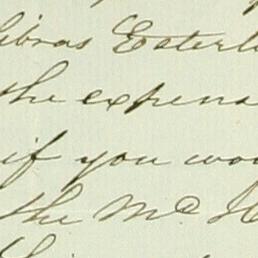 libras Esterl
the expens
if you wou
the Mc H